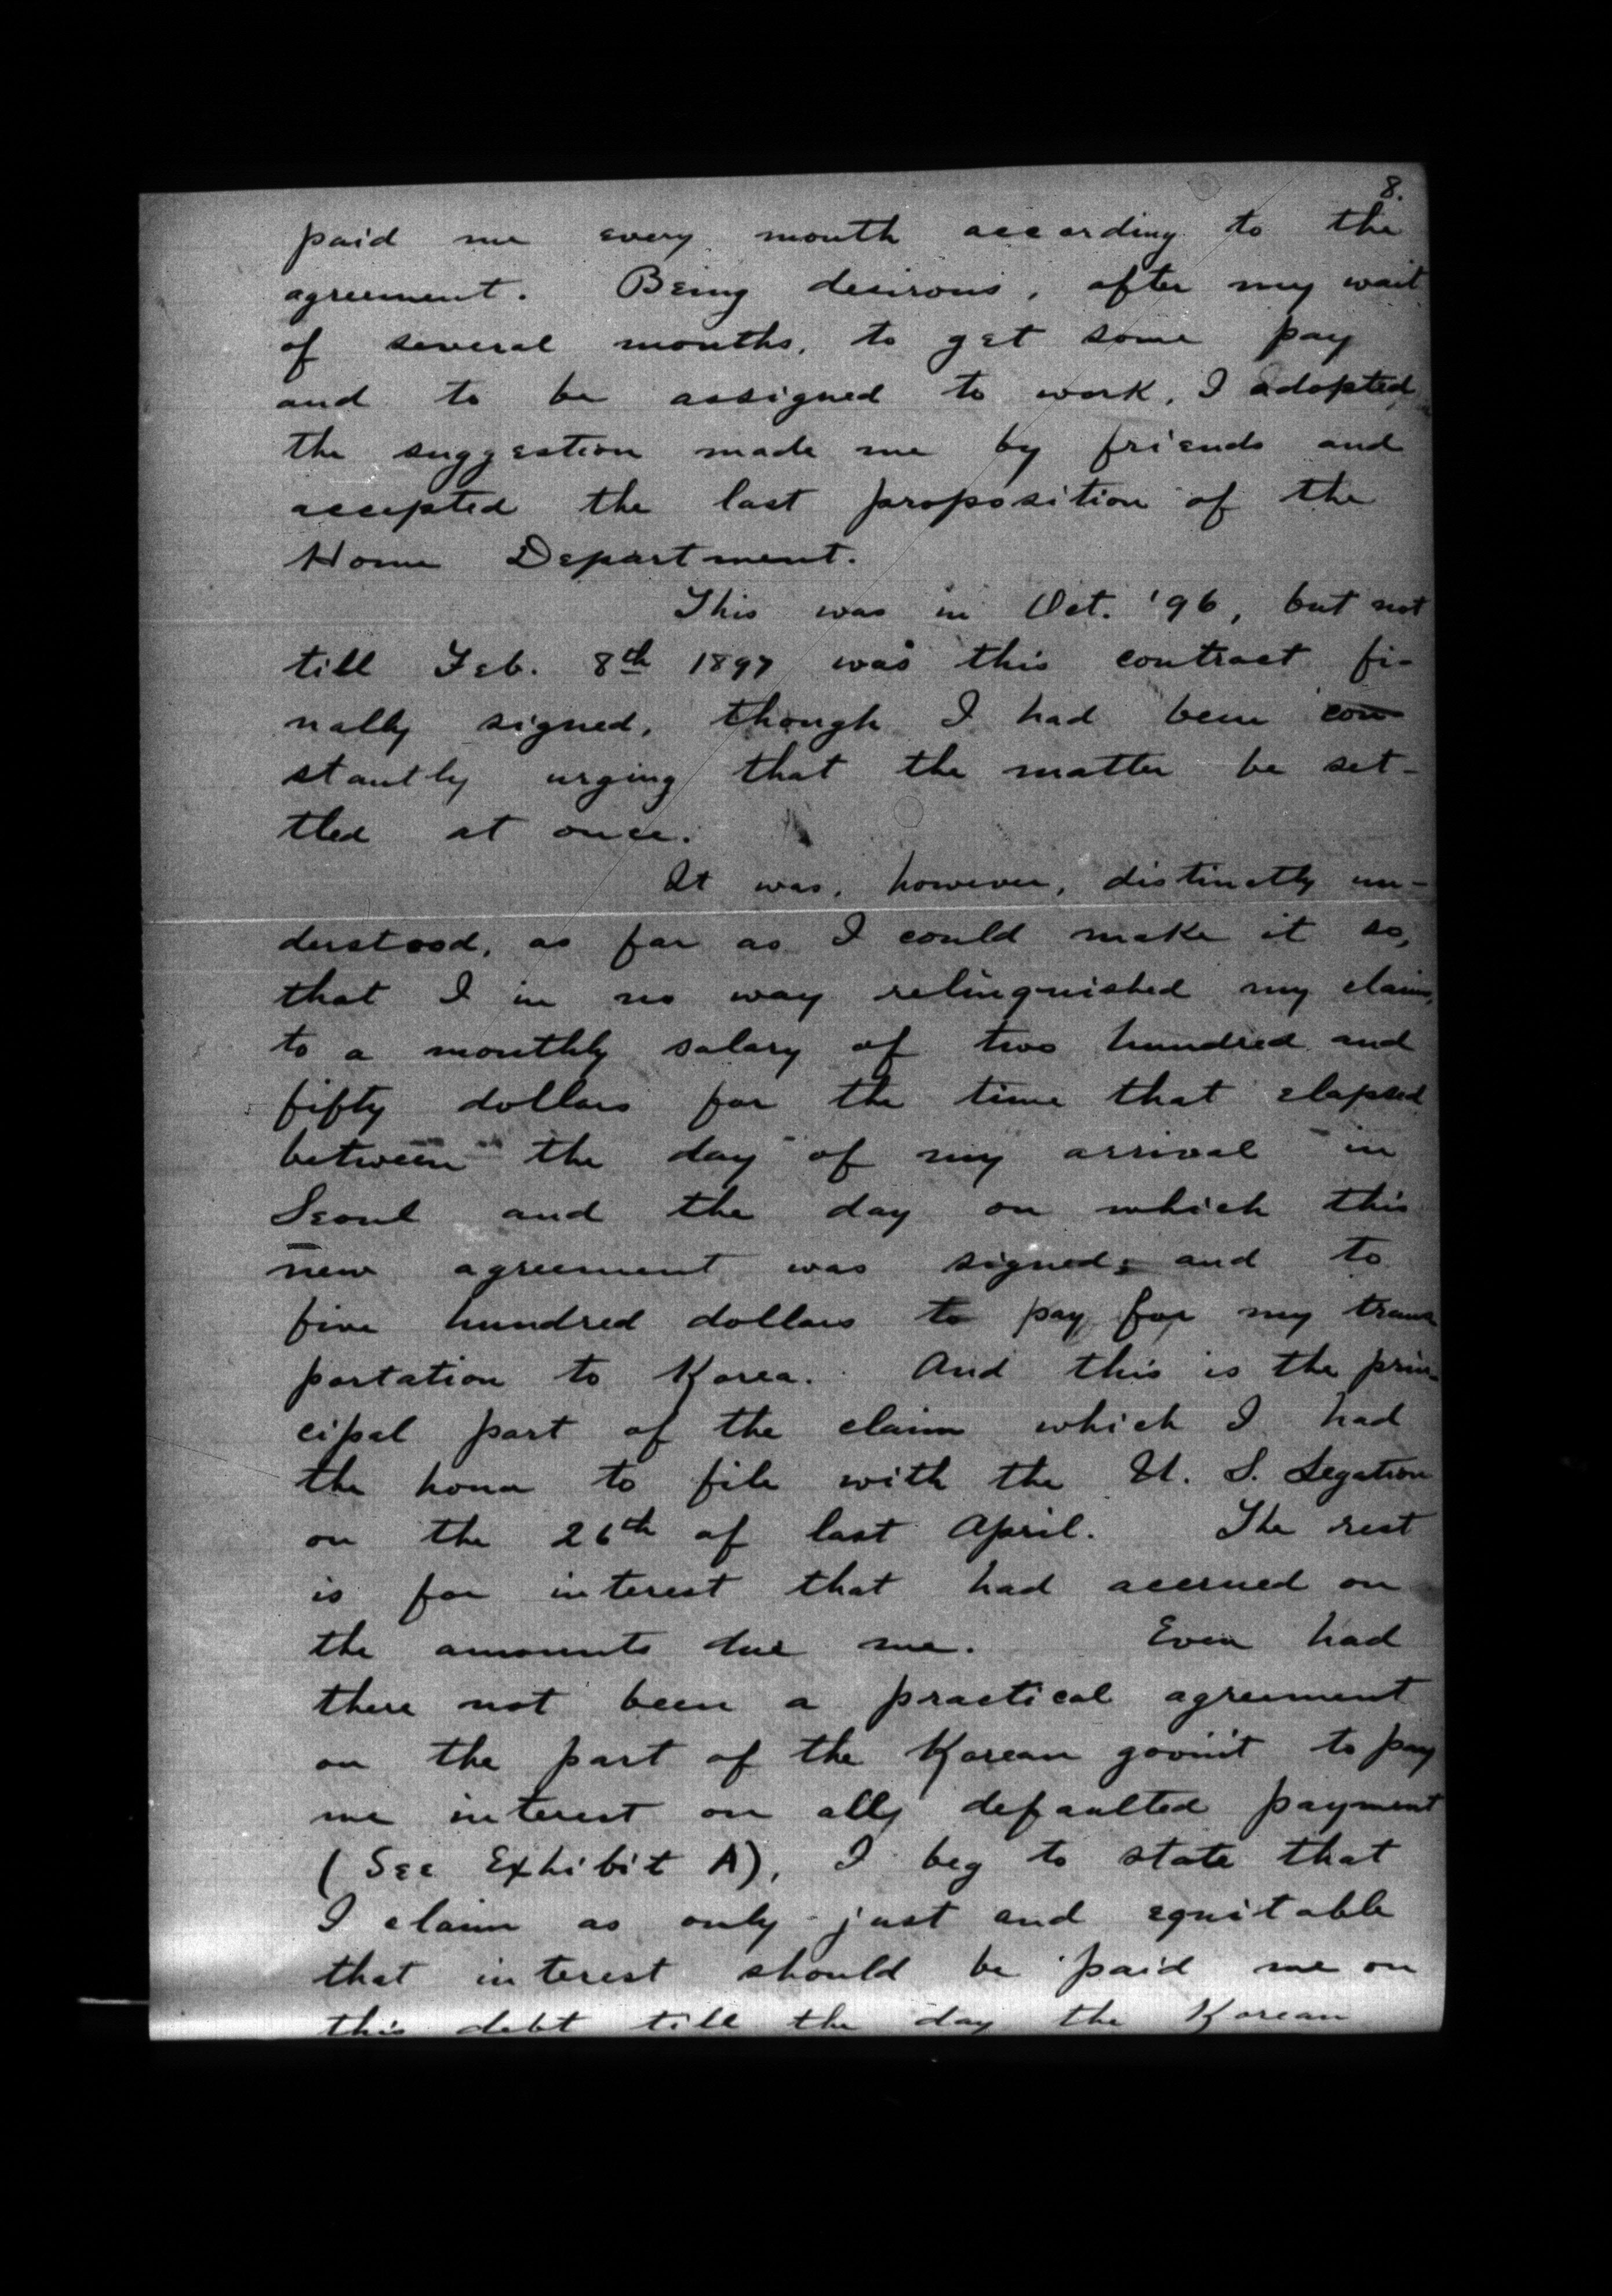 8.
paid me every month according to the
agreement. Being desirous, after my wait
of several months, to get some pay
and to be assigned to work, I adopted
the suggestion made me by friends and
accepted the last proposition of the
Home Department.
This was in Oct. '96, but not
till Feb. 8th 1897 was this contract fi-
nally signed, though I had been con-
stantly urging that the matter be set-
tled at once.
It was, however, distinctly un-
derstood, as far as I could make it so,
that I in no way relinquished my claim,
to a monthly salary of two hundred and
fifty dollars for the time that elapsed
between the day of my arrival in
Seoul and the day on which this
new agreement was signed; and to
five hundred dollars to pay for my trans-
portation to Korea. And this is the prin-
cipal part of the claim which I had
the honor to file with the U. S. Legation
on the 26th of last April. The rest
is for interest that had accrued on
the amounts due me. Even had
there not been a practical agreement
on the part of the Korean gov'n't to pay
me interest on all defaulted payment
(See Exhibit A), I beg to state that
I claim as only just and equitable
that interest should be paid me on
this debt till the day the Korean